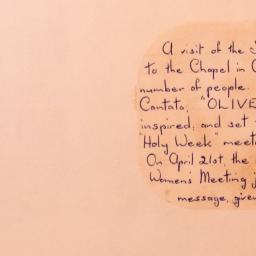 A visit of the
to the Chapel in
number of people.
Cantata, "OLIVE
inspired, and set
"Holy Week" meet
On April 21st, the
Women's Meeting
message, give